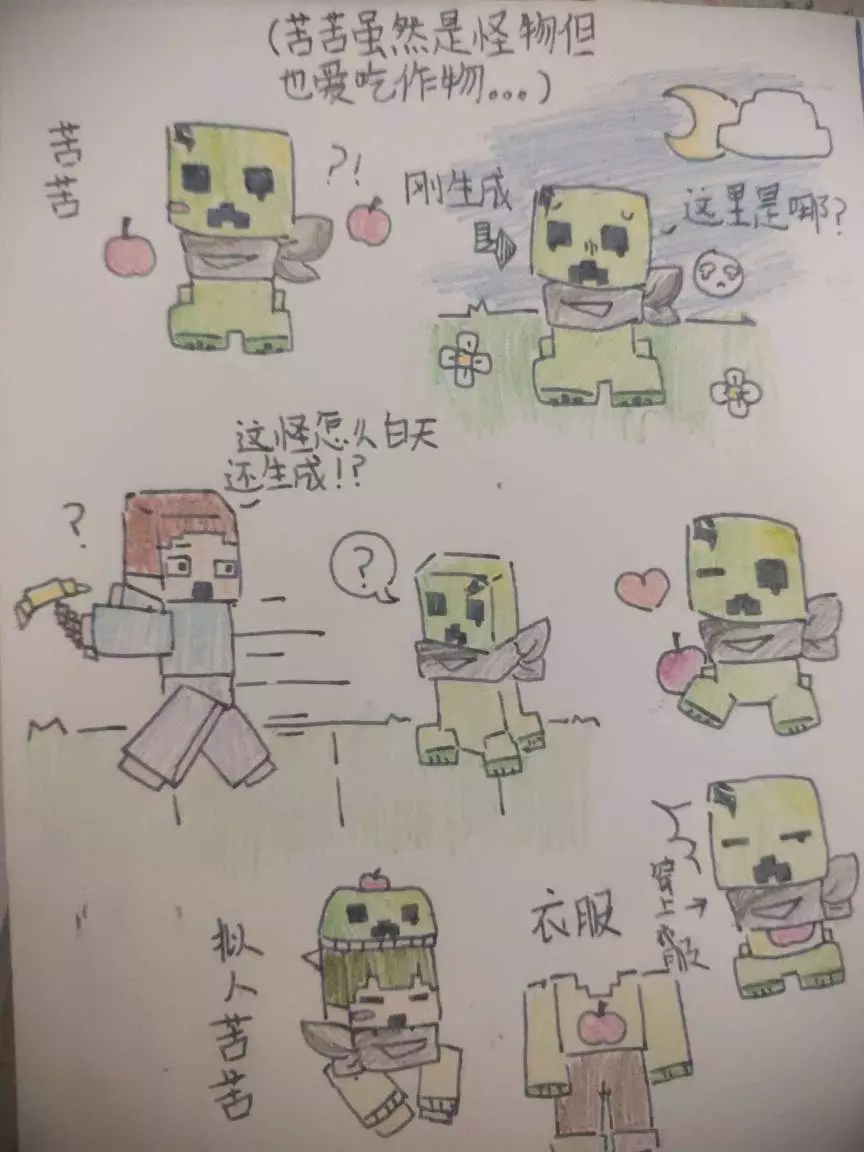 (苦苦虽然是怪物但
也爱吃作物...)
苦苦
?!
刚生成
这里是哪?
这怪怎么白天
还生成!?
?
?
穿上衣服
衣服
拟人苦苦